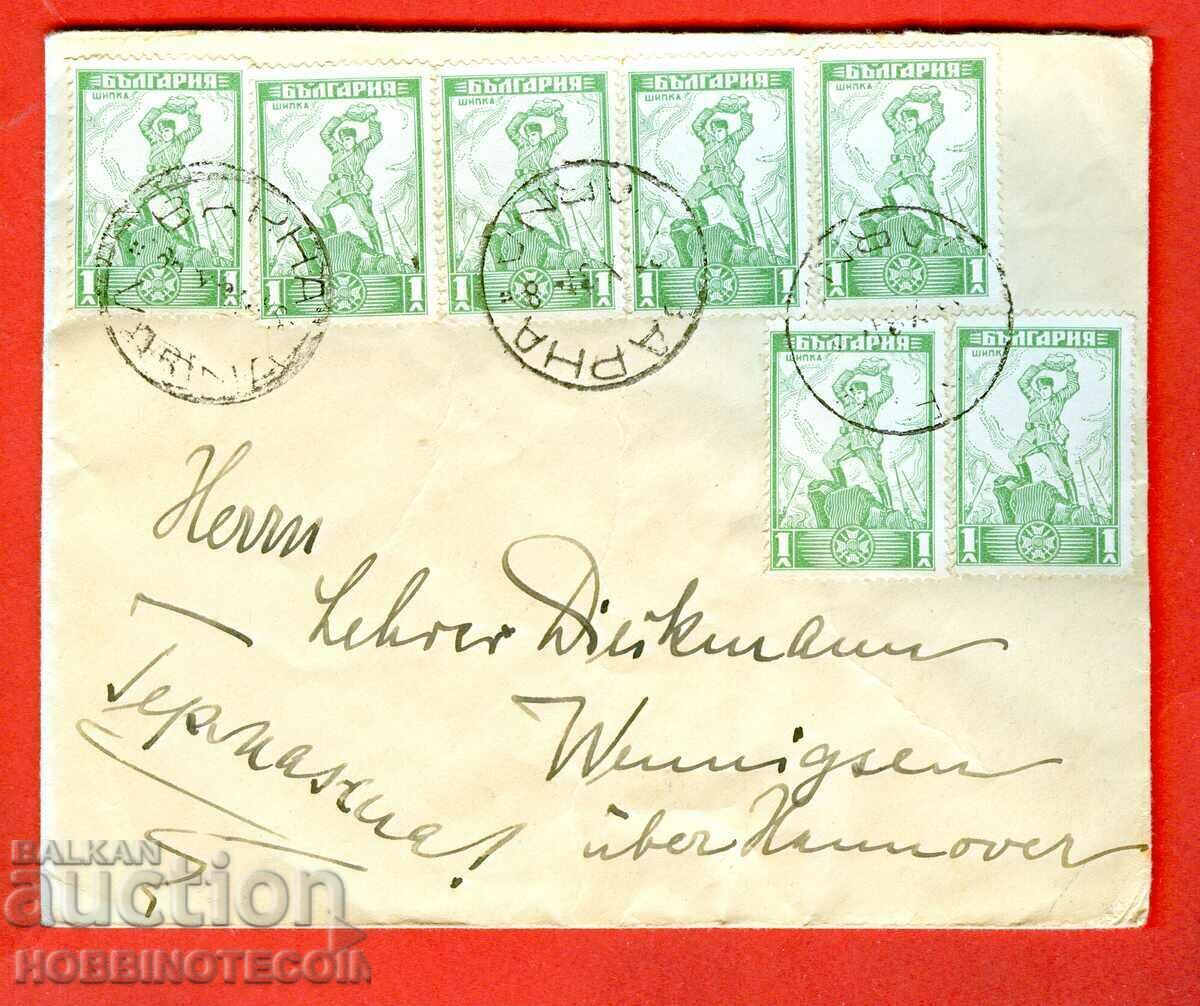 БЪЛГАРИЯ БЪЛГАРИЯ БЪЛГАРИЯ БЪЛГАРИЯ БЪЛГАРИЯ
ШИПКА ШИПКА ШИПКА ШИПКА ШИПКА
ВАРНА
ВАРНА
VARNA
1 Л 1 Л 1 Л 1 Л 1 Л 1 Л 1 Л 1 Л 1 Л 1 Л
БЪЛГАРИЯ БЪЛГАРИЯ
ШИПКА ШИПКА
1 Л 1 Л 1 Л 1 Л
Herrn
Lehrer Dieckmann
Германия!
Wennigsen
über Hannover
BALKAN
auction
HOBBINOTECOIN